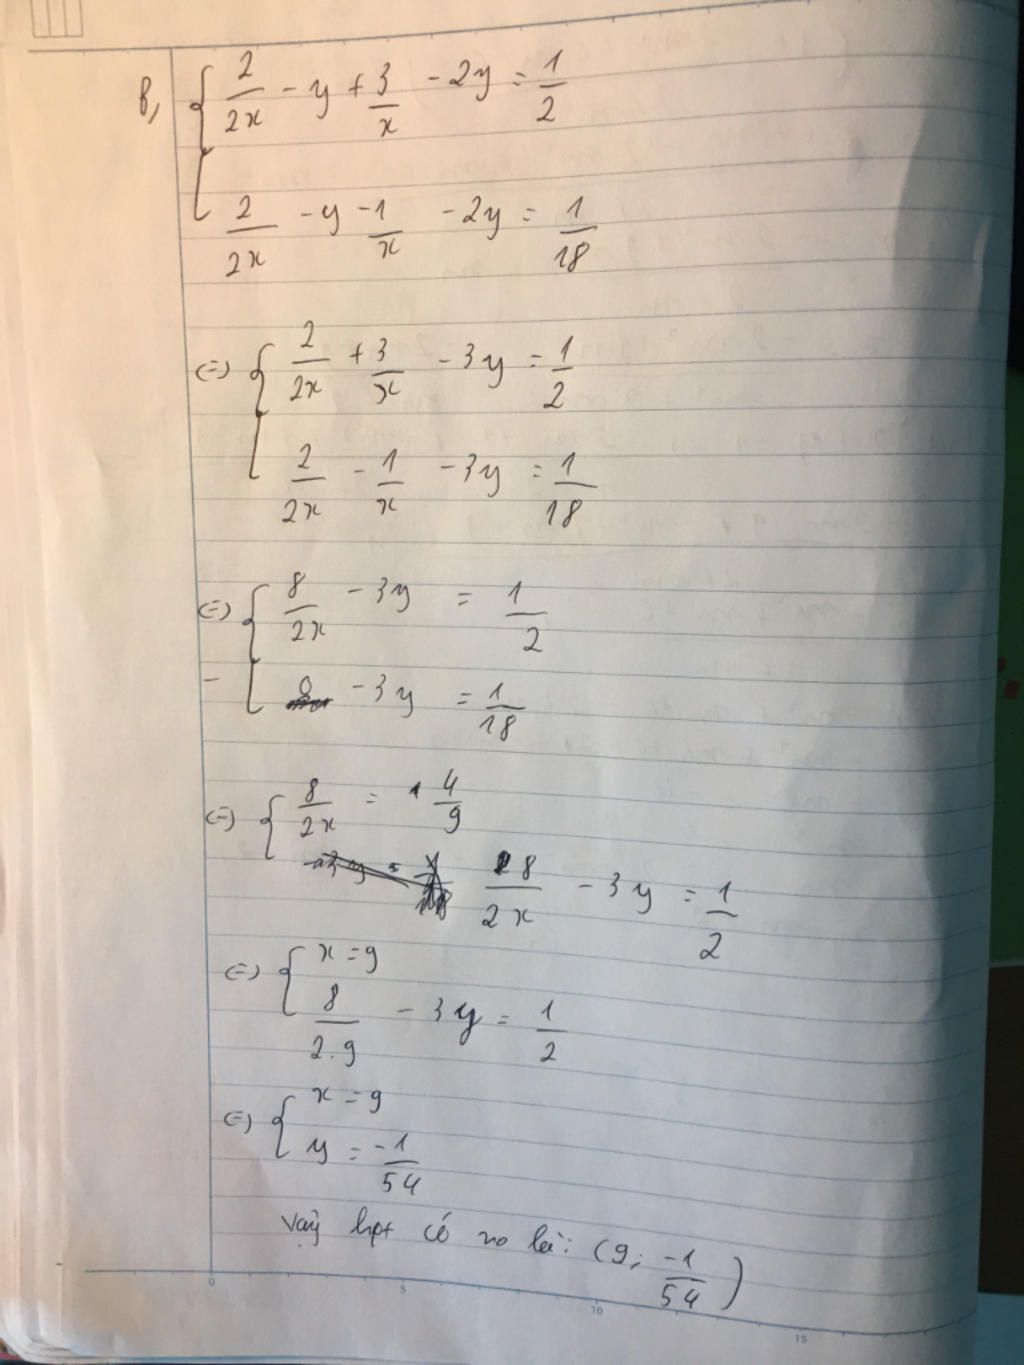 b, { 2/2x - y + 3/x - 2y = 1/2
2/2x - y - 1/x - 2y = 1/18
(=) { 2/2x + 3/x - 3y = 1/2
2/2x - 1/x - 3y = 1/18
(=) { 8/2x - 3y = 1/2
- 3y = 1/18
(=) { 8/2x = 4/9
8/2x - 3y = 1/2
(=) { x = 9
8/2.9 - 3y = 1/2
(=) { x = 9
y = -1/54
Vậy hpt có no là: (9; -1/54)
0 5 10 15